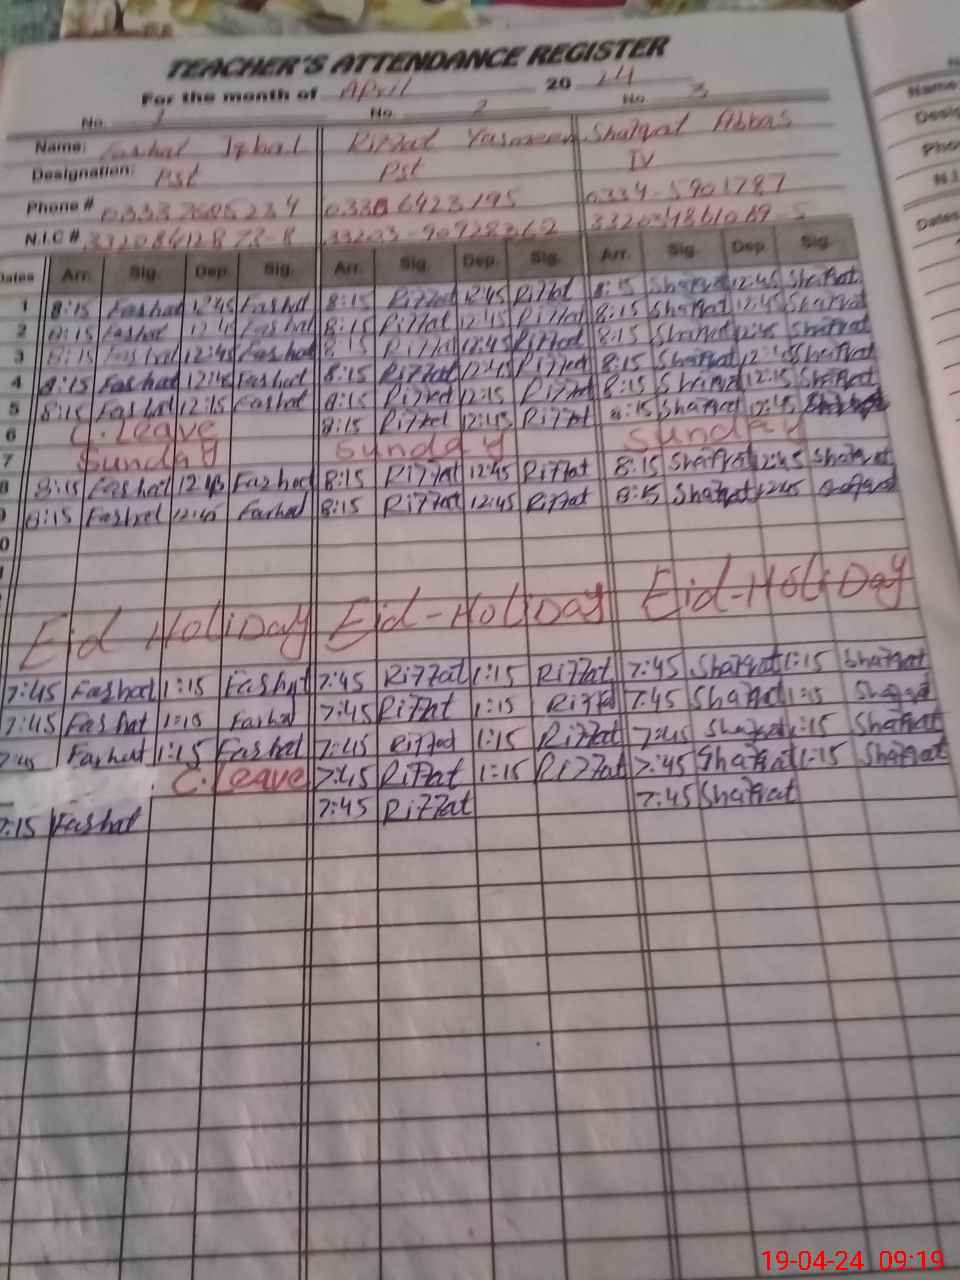 TEACHER'S ATTENDANCE REGISTER
For the month of April 20 24
No. 1 No. 2 No 3
Name: Fashat Iqbal Riffat Yasmeen Shafqat Abbas
Designation: Pst Pst IV
Phone # 0333 7605234 6423195 0334-5901787
N.I.C #
Dates Arr. Sig. Dep. Sig. Arr. Sig. Dep. Sig. Arr. Sig. Dep. Sig.
1 8:15 Fashat 12:45 Fashat 8:15 Riffat 12:45 Riffat 8:15 Shafqat 12:45 Shafqat
2 8:15 Fashat Fashat 8:15 Riffat 12:45 Riffat 8:15 Shafqat 12:45 Shafqat
3 8:15 Fashat 12:45 Fashat 8:15 Riffat 12:45 Riffat 8:15 Shafqat 12:45 Shafqat
4 8:15 Fashat 12:45 Fashat 8:15 Riffat 12:45 Riffat 8:15 Shafqat Shafqat
5 8:15 Fashat 12:15 Fashat 8:15 Riffat 12:15 Riffat 8:15 Shafqat 12:15 Shafqat
6 C. Leave 8:15 Riffat 12:45 Riffat 8:15 Shafqat 12:45
7 Sunday Sunday Sunday
8 8:15 Fashat 12:45 Fashat 8:15 Riffat 12:45 Riffat 8:15 Shafqat 12:45 Shafqat
9 8:15 Fashat 12:45 Fashat 8:15 Riffat 12:45 Riffat 8:15 Shafqat 12:45
0
Eid Holiday Eid-Holiday Eid-Holiday
7:45 Fashat 1:15 Fashat 7:45 Riffat 1:15 Riffat 7:45 Shafqat 1:15 Shafqat
7:45 Fashat 1:15 Fashat 7:45 Riffat 1:15 Riffat 7:45 Shafqat 1:15 Shafqat
7:45 Fashat 1:15 Fashat 7:45 Riffat 1:15 Riffat 7:45 Shafqat 1:15 Shafqat
C. Leave 7:45 Riffat 1:15 Riffat 7:45 Shafqat 1:15 Shafqat
7:15 Fashat 7:45 Riffat 7:45 Shafqat
Name:
Dates
19-04-24 09:19